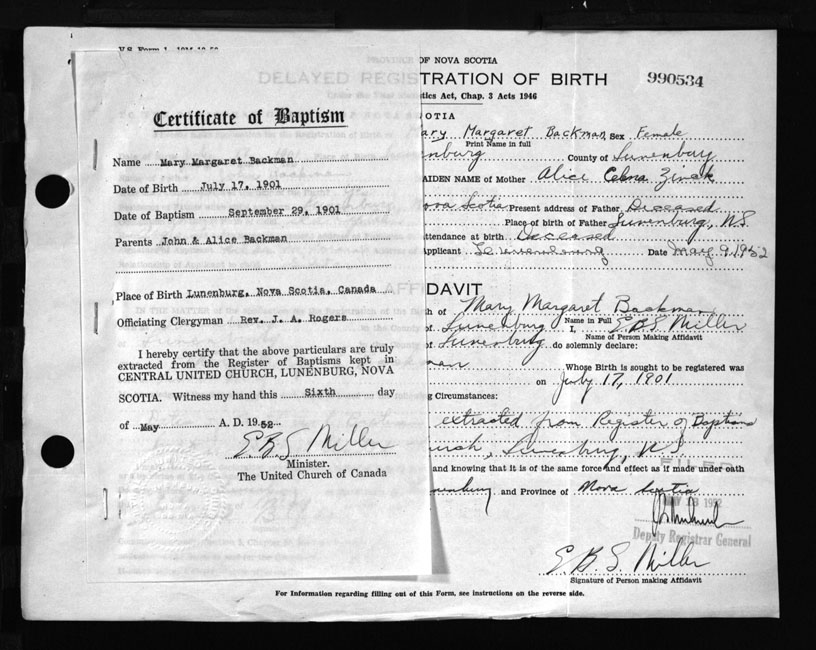 Certificate of Baptism
Name Mary Margaret Backman
Date of Birth July 17, 1901
Date of Baptism September 29, 1901
Parents John & Alice Backman
Place of Birth Lunenburg, Nova Scotia, Canada
Officiating Clergyman Rev. J. A. Rogers
I hereby certify that the above particulars are truly
extracted from the Register of Baptisms kept in
CENTRAL UNITED CHURCH, LUNENBURG, NOVA
SCOTIA. Witness my hand this Sixth day
of May A. D. 1952
E.B.S. Miller
Minister.
The United Church of Canada
PROVINCE OF NOVA SCOTIA
DELAYED REGISTRATION OF BIRTH
990534
tics Act, Chap. 3 Acts 1946
OTIA
ary Margaret Backman Sex Female
Print Name in full
nburg County of Lunenburg
AIDEN NAME of Mother Alice Zinck
ova Scotia Present address of Father Deceased
Place of birth of Father Lunenburg, N.S.
ttendance at birth Deceased
pplicant Lunenburg Date May 9, 1952
FIDAVIT
th of Mary Margaret Backman
Name in Full
of Lunenburg I, E.B.S. Miller
Name of Person Making Affidavit
of Lunenburg do solemnly declare:
man Whose Birth is sought to be registered was
on July 17, 1901
g Circumstances:
extracted from Register of Baptisms
urch, Lunenburg, N.S.
and knowing that it is of the same force and effect as if made under oath
nenburg and Province of Nova Scotia
FILED
MAY 13 1952
Deputy Registrar General
E.B.S. Miller
Signature of Person making Affidavit
For Information regarding filling out of this Form, see instructions on the reverse side.